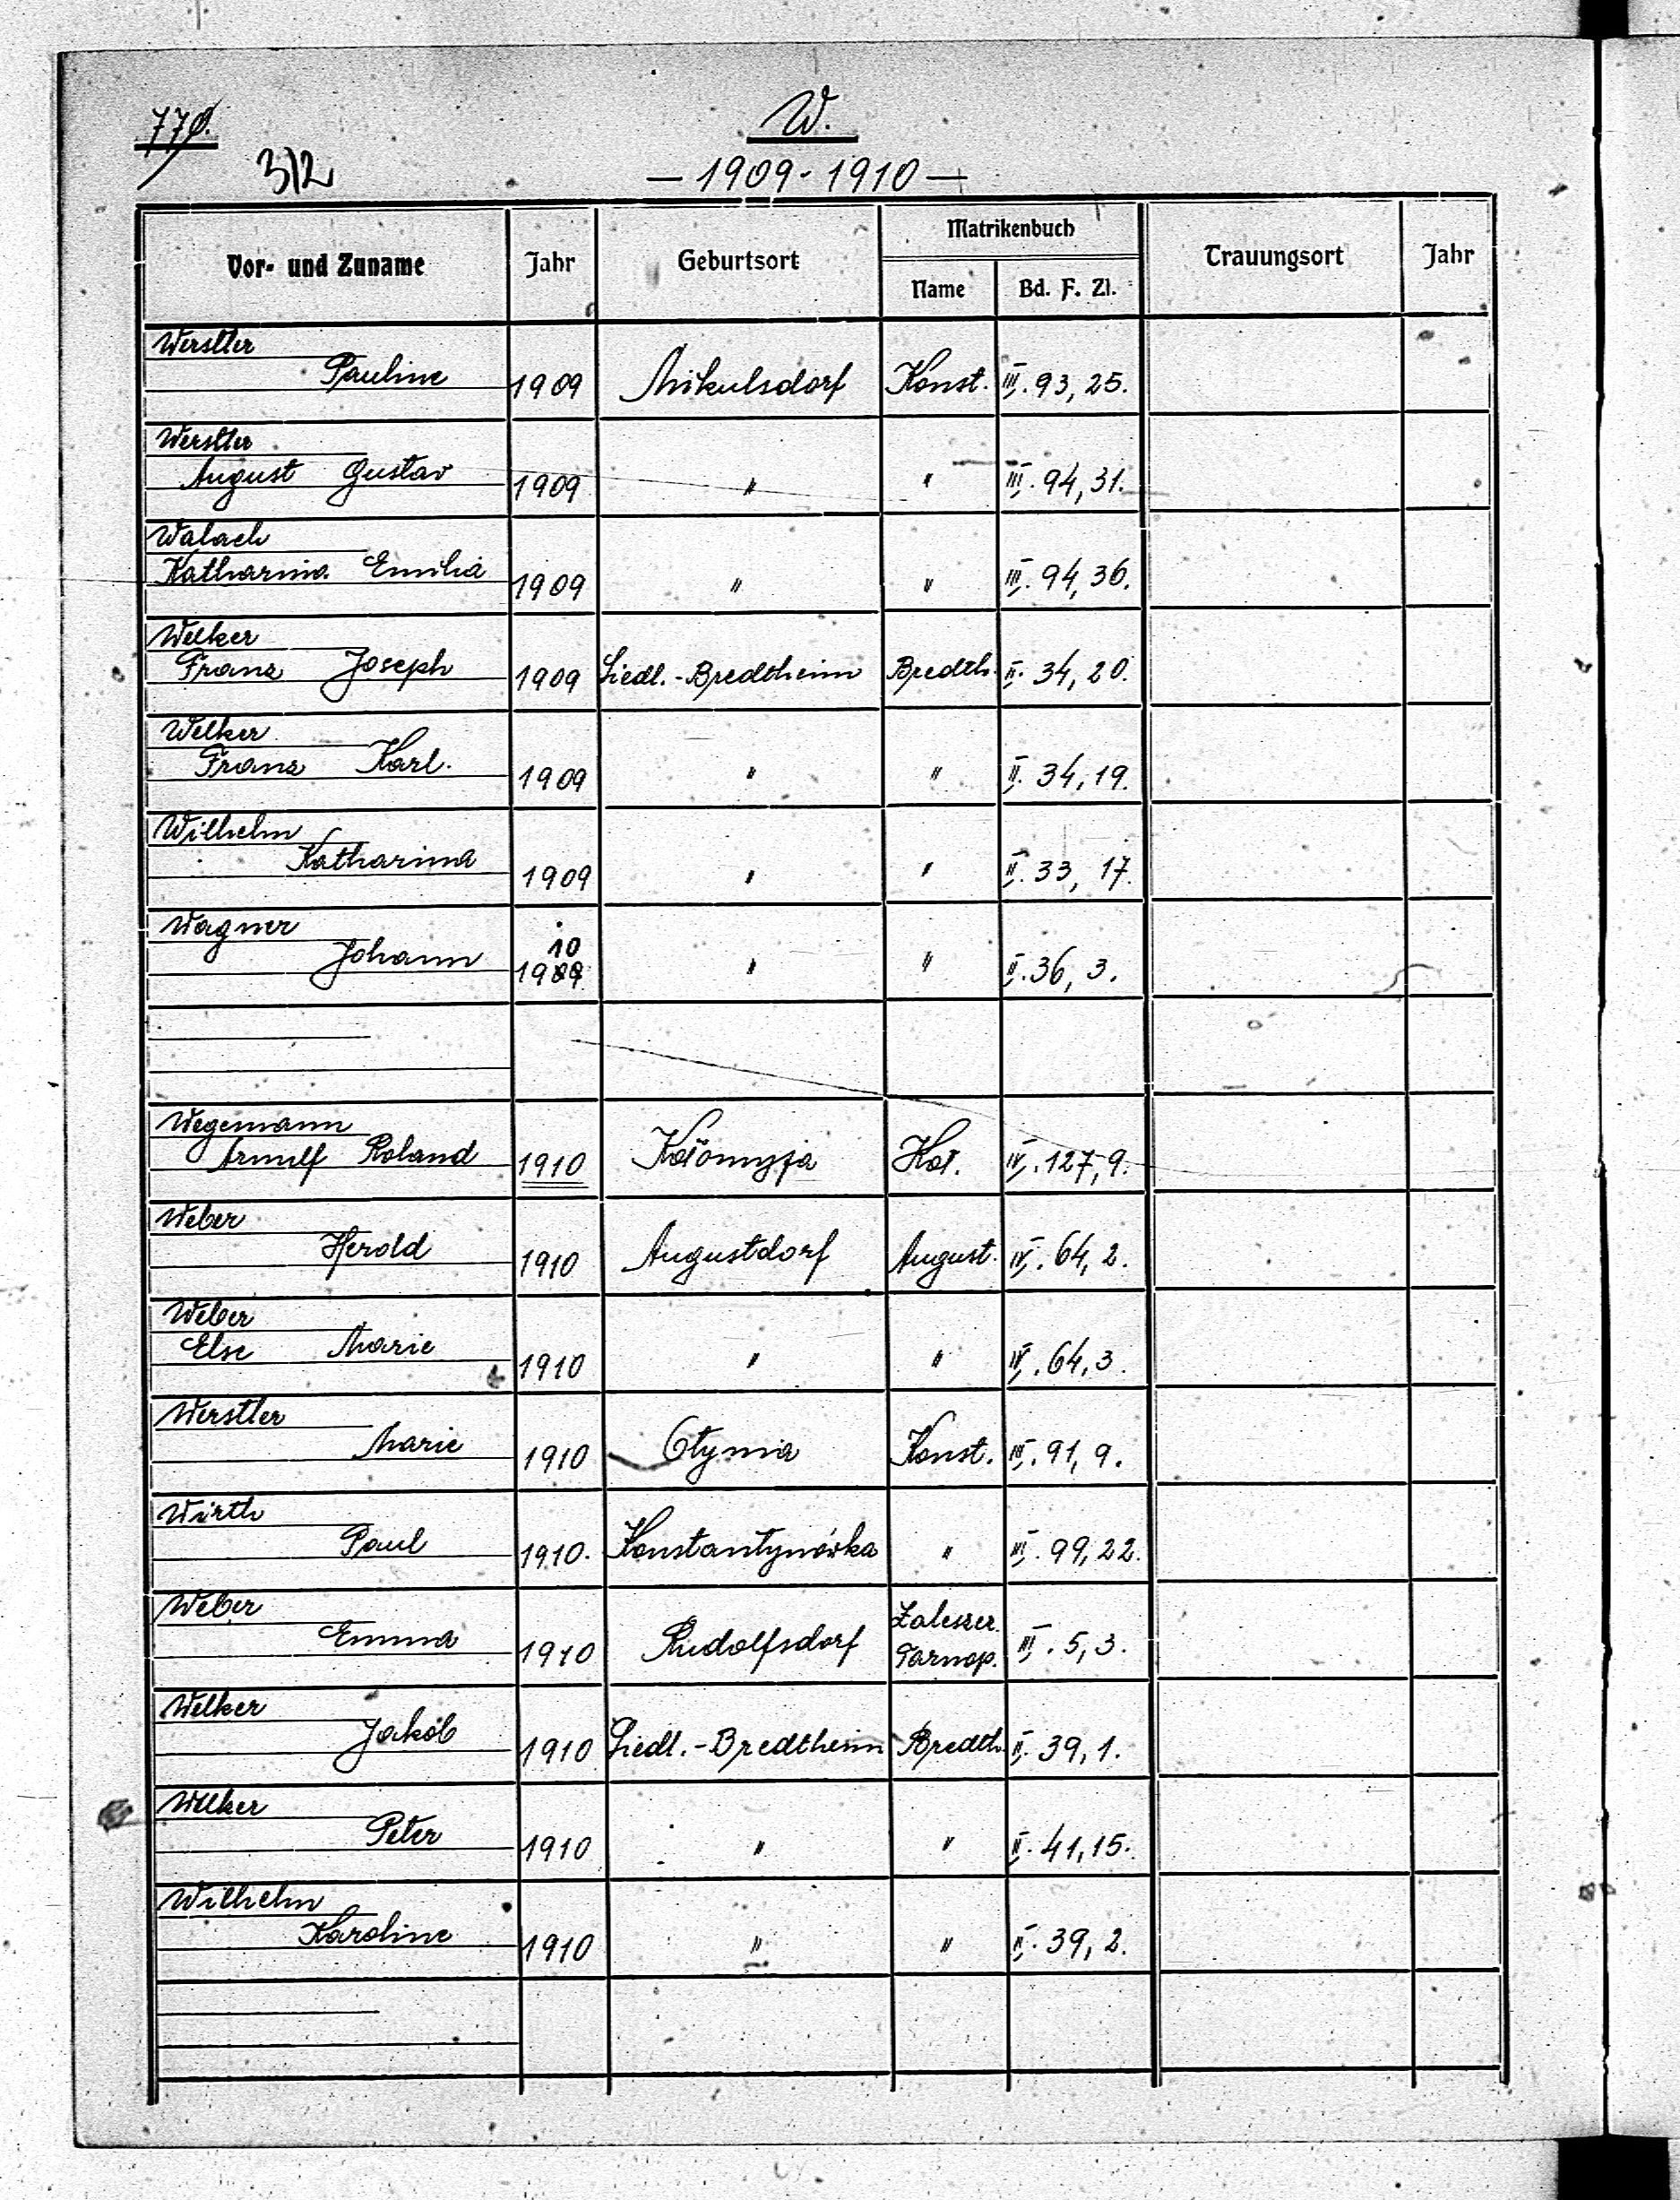 770.
W.
312
— 1909-1910 —
Vor- und Zuname Jahr Geburtsort Matrikenbuch Trauungsort Jahr
Name Bd. F. Zl.
Werstler
Pauline 1909 Mikulsdorf Konst. III. 93, 25.
Werstler
August Gustav 1909 " " III. 94, 31.
Walach
Katharina Emilia 1909 " " III. 94, 36.
Welker
Franz Joseph 1909 Siedl.-Bredtheim Bredth. II. 34, 20.
Welker
Franz Karl. 1909 " " II. 34, 19.
Wilhelm
Katharina 1909 " " II. 33, 17.
Wagner
10
Johann 1909 " " II. 36, 3.
Wegemann
Arnulf Roland 1910 Kołomyja Koł. IV. 127, 9.
Weber
Herold 1910 Augustdorf August. IV. 64, 2.
Weber
Else Marie 1910 " " IV. 64, 3.
Werstler
Marie 1910 Otynia Konst. III. 91, 9.
Wirth
Paul 1910. Konstantynówka " III. 99, 22.
Weber
Emma 1910 Rudolfsdorf Zaleszcz. Tarnop. III. 5, 3.
Welker
Jakob 1910 Siedl.-Bredtheim Bredth. II. 39, 1.
Welker
Peter 1910 " " II. 41, 15.
Wilhelm
Karoline 1910 " " II. 39, 2.